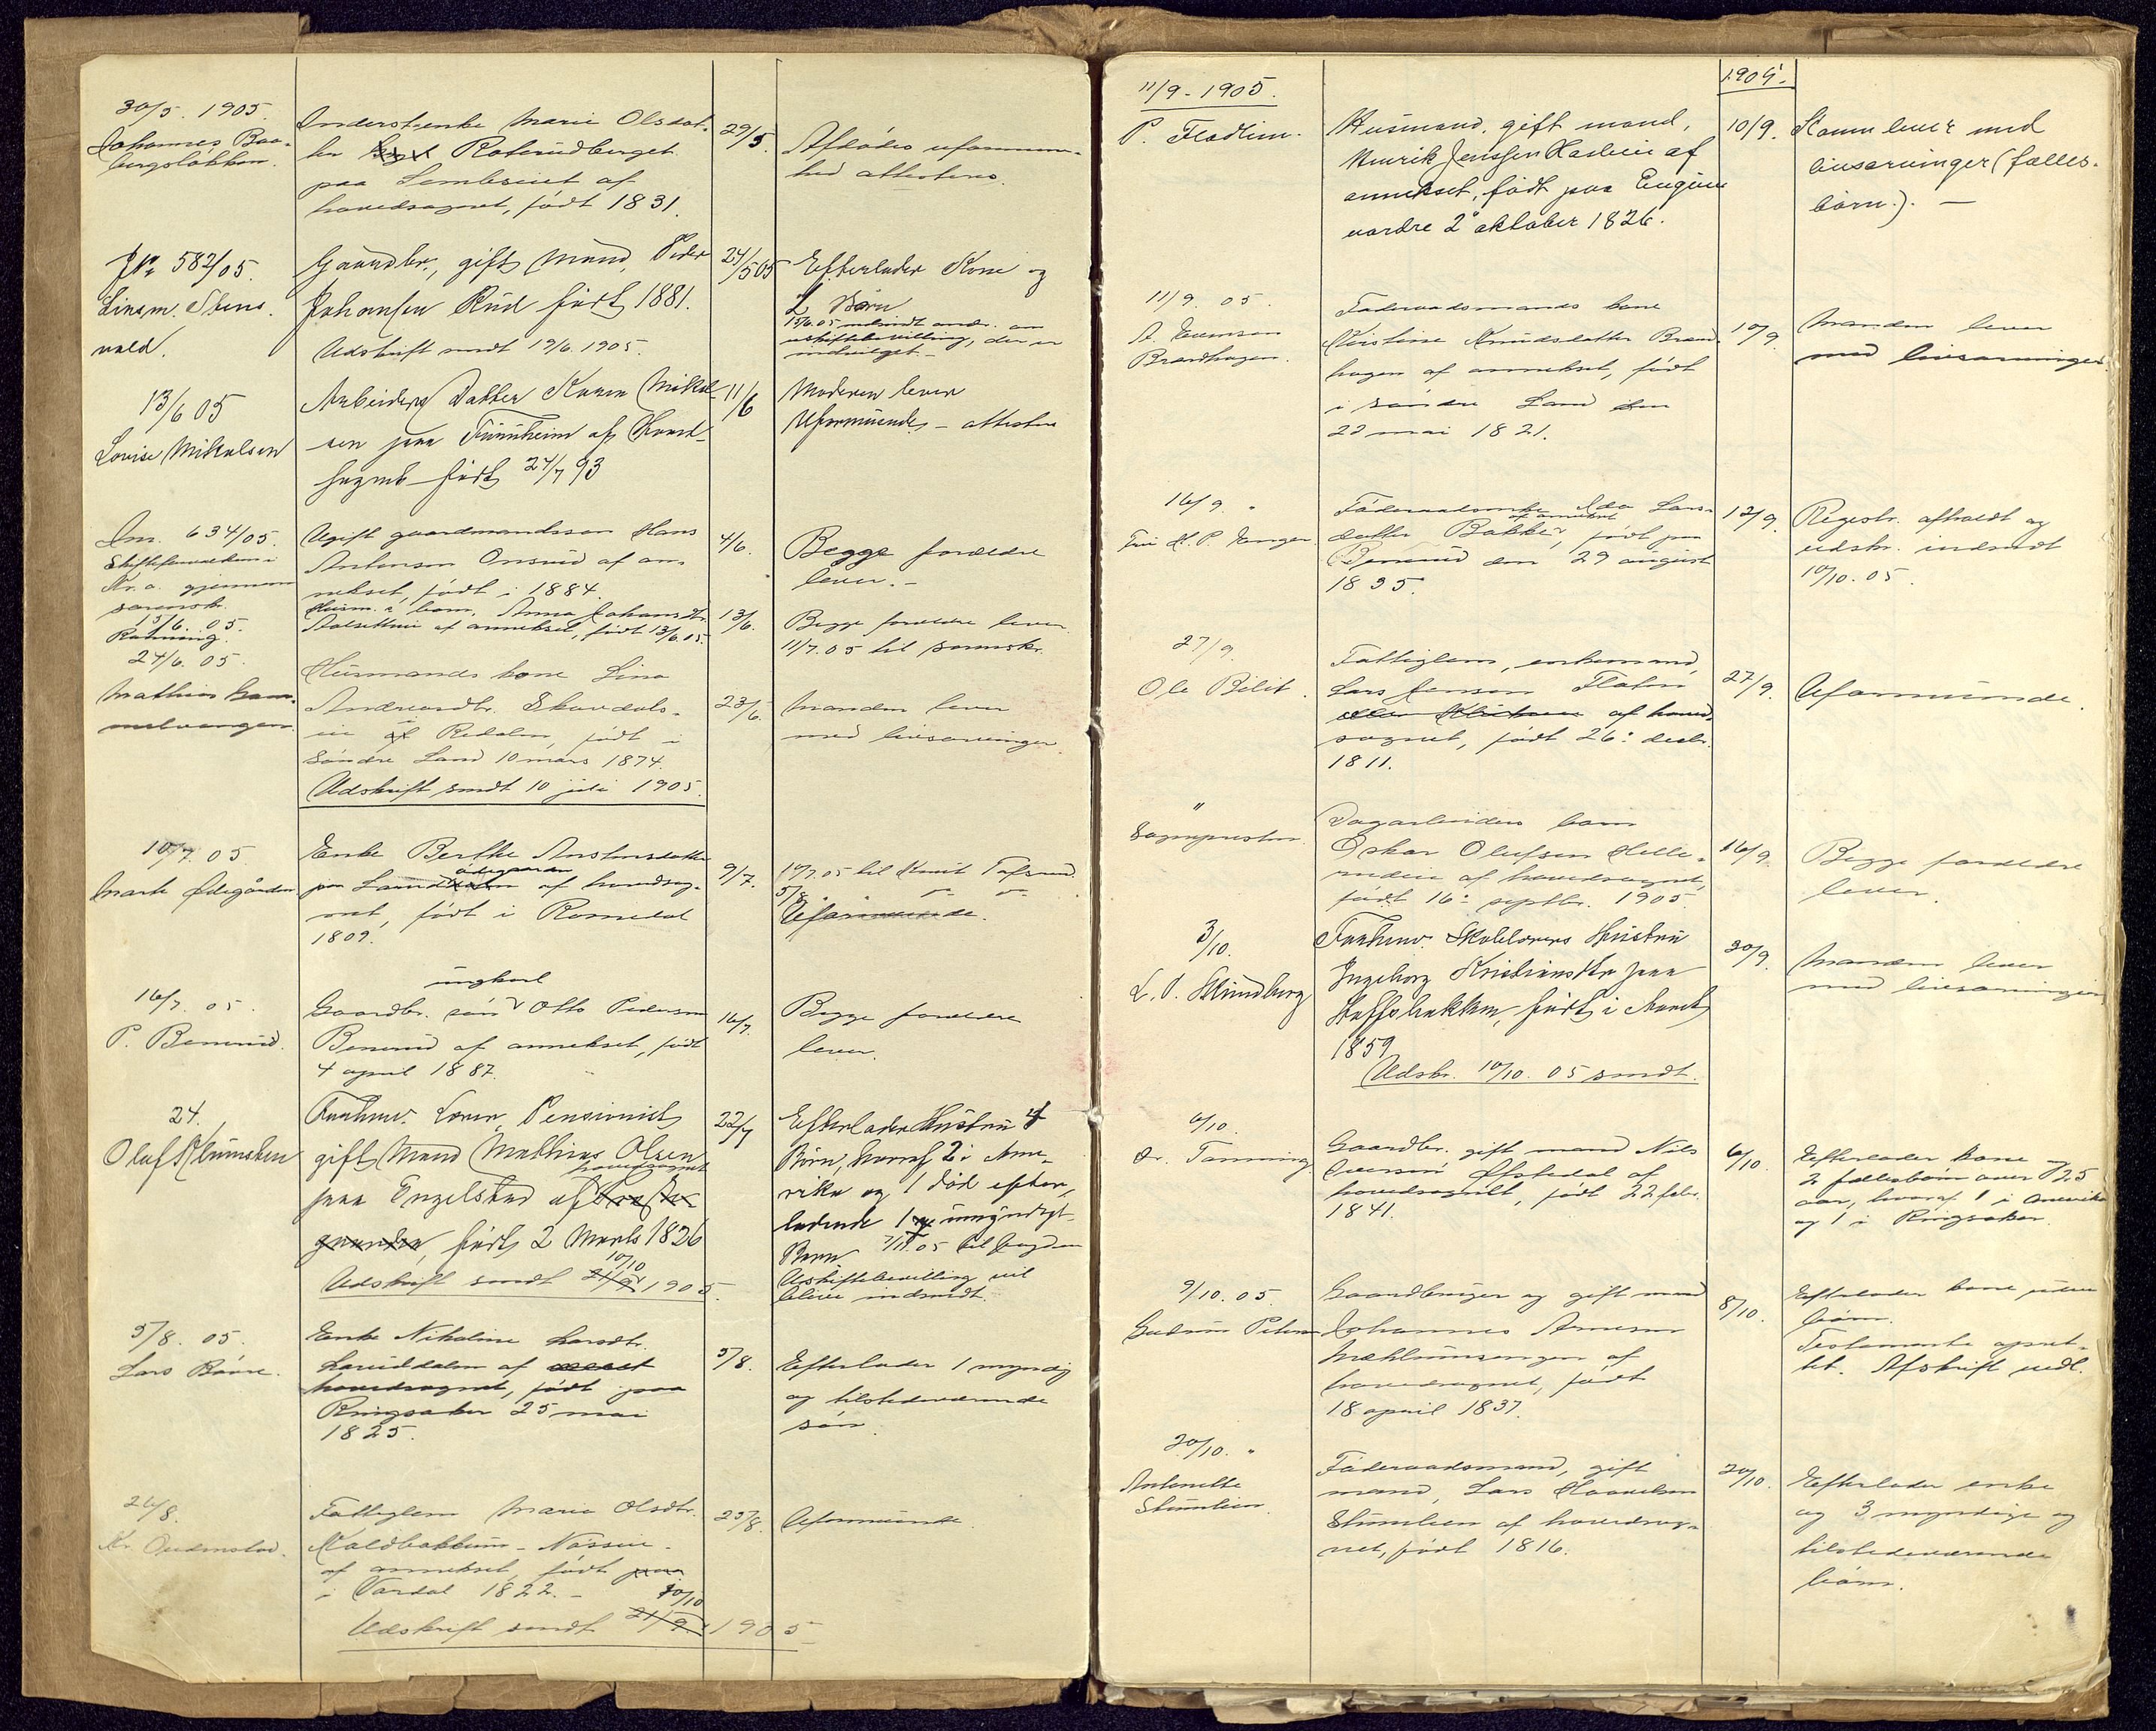 30/5. 1905.
Johannes Baa-
bergsløkken.
Inderst, enke Marie Olsdat-
ter Roterudberget
paa
hovedsognet, født 1831.
29/5.
Afdødes uformuen-
hed attesteres.
JNr 582/05.
Linsm. Stens-
vold.
Gaardbr., gift Mand, Peder
Johansen Rud født 1881.
Udskrift sendt 19/6. 1905.
24/5 05
Efterlader Kone og
2 Børn
15/6.05 indsendt andr. om
uskiftebevilling, der er
indvilget.
13/6 05
Lovise Mikalsen
Arbeiders Datter Karen Mikal-
sen paa af Hoved-
sognet født 24/7 93
11/6
Moderen lever
Uformuende - attestere
Jnr. 634/05.
Skifteforvalteren i
Kr.a. gjennem
sorenskr.
13/6. 05.
Ugift gaardmandssøn Hans
Antonsen Onsrud af an-
nekset, født i 1884.
4/6.
Begge forældre
lever.-
Husm. s barn, Anna Johansdtr.
af annekset, født 13/6.05.
13/6.
Begge forældre lever.
11/7.05 til sorenskr.
24/6. 05.
Mathias Ham-
melvangen
Husmands kone Lina
Andreasdtr. Skardals-
ie Redalen, født i
Søndre Land 10 mars 1874.
Udskrift sendt 10 juli 1905.
23/6.
Manden lever
med livsarvinger.
10/7. 05.
Marte Ødegården
Enke Berthe Anstensdatter
paa ødegaarden af hovedsog-
net, født i Romedal
1809.
9/7.
Uformuende.
16/7. 05.
P. Bennerud.
ungkarl
Gaardbr. søn Otto Pedersen
Bennerud af annekset, født
4 april 1887.
16/7.
Begge forældre
lever.
24.
Olaf Klumsten
Forhenv. Lærer, Pensionist
gift Mand Mathias Olsen
hovedsognet
paa Engelstad af
født 2 Marts 1826
10/10
Udskrift sendt 21/9 1905.
22/7
Efterlader Hustru 4
Børn, hvoraf 2 i Ame-
rika og 1 død efter-
ladende 1 umyndigt
Barn 05 til fogden
Uskiftebevilling vil
blive indsendt.
5/8. 05.
Lars Baare.
Enke Nikoline Larsdtr.
Lauiddalen af
hovedsognet, født paa
Ringsaker 25 mai
1825.
5/8.
Efterlader 1 myndig
og tilstedeværende
søn.
26/8.
Kr. Oudenstad.
Fattiglem Marie Olsdtr.
Kaldbakkeie - Næssue.
af annekset, født paa
i Vardal 1822. -
10/10
Udskrift sendt 21/9. 1905
25/8.
Uformuende.
11/9 - 1905.
P. Fladlien.
1905.
Husmand, gift mand,
Henrik Jenssen Haslien af
annekset, født paa Engene
nordre 2 oktober 1826.
10/9.
Konen lever med
livsarvinger (fælles-
børn). -
11/9. 05.
A. Evensen
Brandhagen.
Føderaadsmands kone
Kristine Knudsdatter Brand-
hagen af annekset, født
i søndre Land den
22 mai 1821.
10/9.
Manden lever
med livsarvinger.
16/9. "
Føderaadsenke Ida Lars-
datter Bakke, af annekset født paa
Bennerud den 29 august
1835.
12/9.
Registr. afholdt og
udskr. indsendt
10/10. 05.
27/9.
Ole Bilit.
Fattiglem, enkemand,
Lars Jensen Flaten
af hoved-
sognet, født 26: decbr.
1811.
27/9.
Uformuende.
"
Sognepresten
Dagarbeiders barn
Oskar Olufsen Helle-
rudeie af hovedsognet,
født 16: septbr. 1905.
16/9.
Begge forældre
lever.
3/10.
L. O. Klundberg
Forhenv. Skolelærers Hustru
Ingeborg Kristiansdtr paa
Hoffsbakken, født i
1859
Udskr. 10/10. 05 sendt.
30/9.
Manden lever
med livsarvinger
6/10.
Gaardbr. gift mand Nils
Iversen Øfstedal af
hovedsognet, født 22 febr.
1841.
6/10.
Efterlader kone og
2 fællesbørn over 25
aar, hvoraf 1 i Amerika
og 1 i Ringsaker.
9/10. 05.
Gudrun Petersen
Gaardbruger og gift mand
Johannes Arnesen
Mæhlumsengen af
hovedsognet, født
18 april 1837.
8/10.
Efterlader kone uden
børn.
Testamente opret-
tet. Afskrift vedl.
20/10. "
Antonette
Stumlien
Føderaadsmand, gift
mand, Lars Haavelsen
Stumlien af hovedsog-
net, født 1816.
20/10.
Efterlader enke
og 3 myndige og
tilstedeværende
børn.